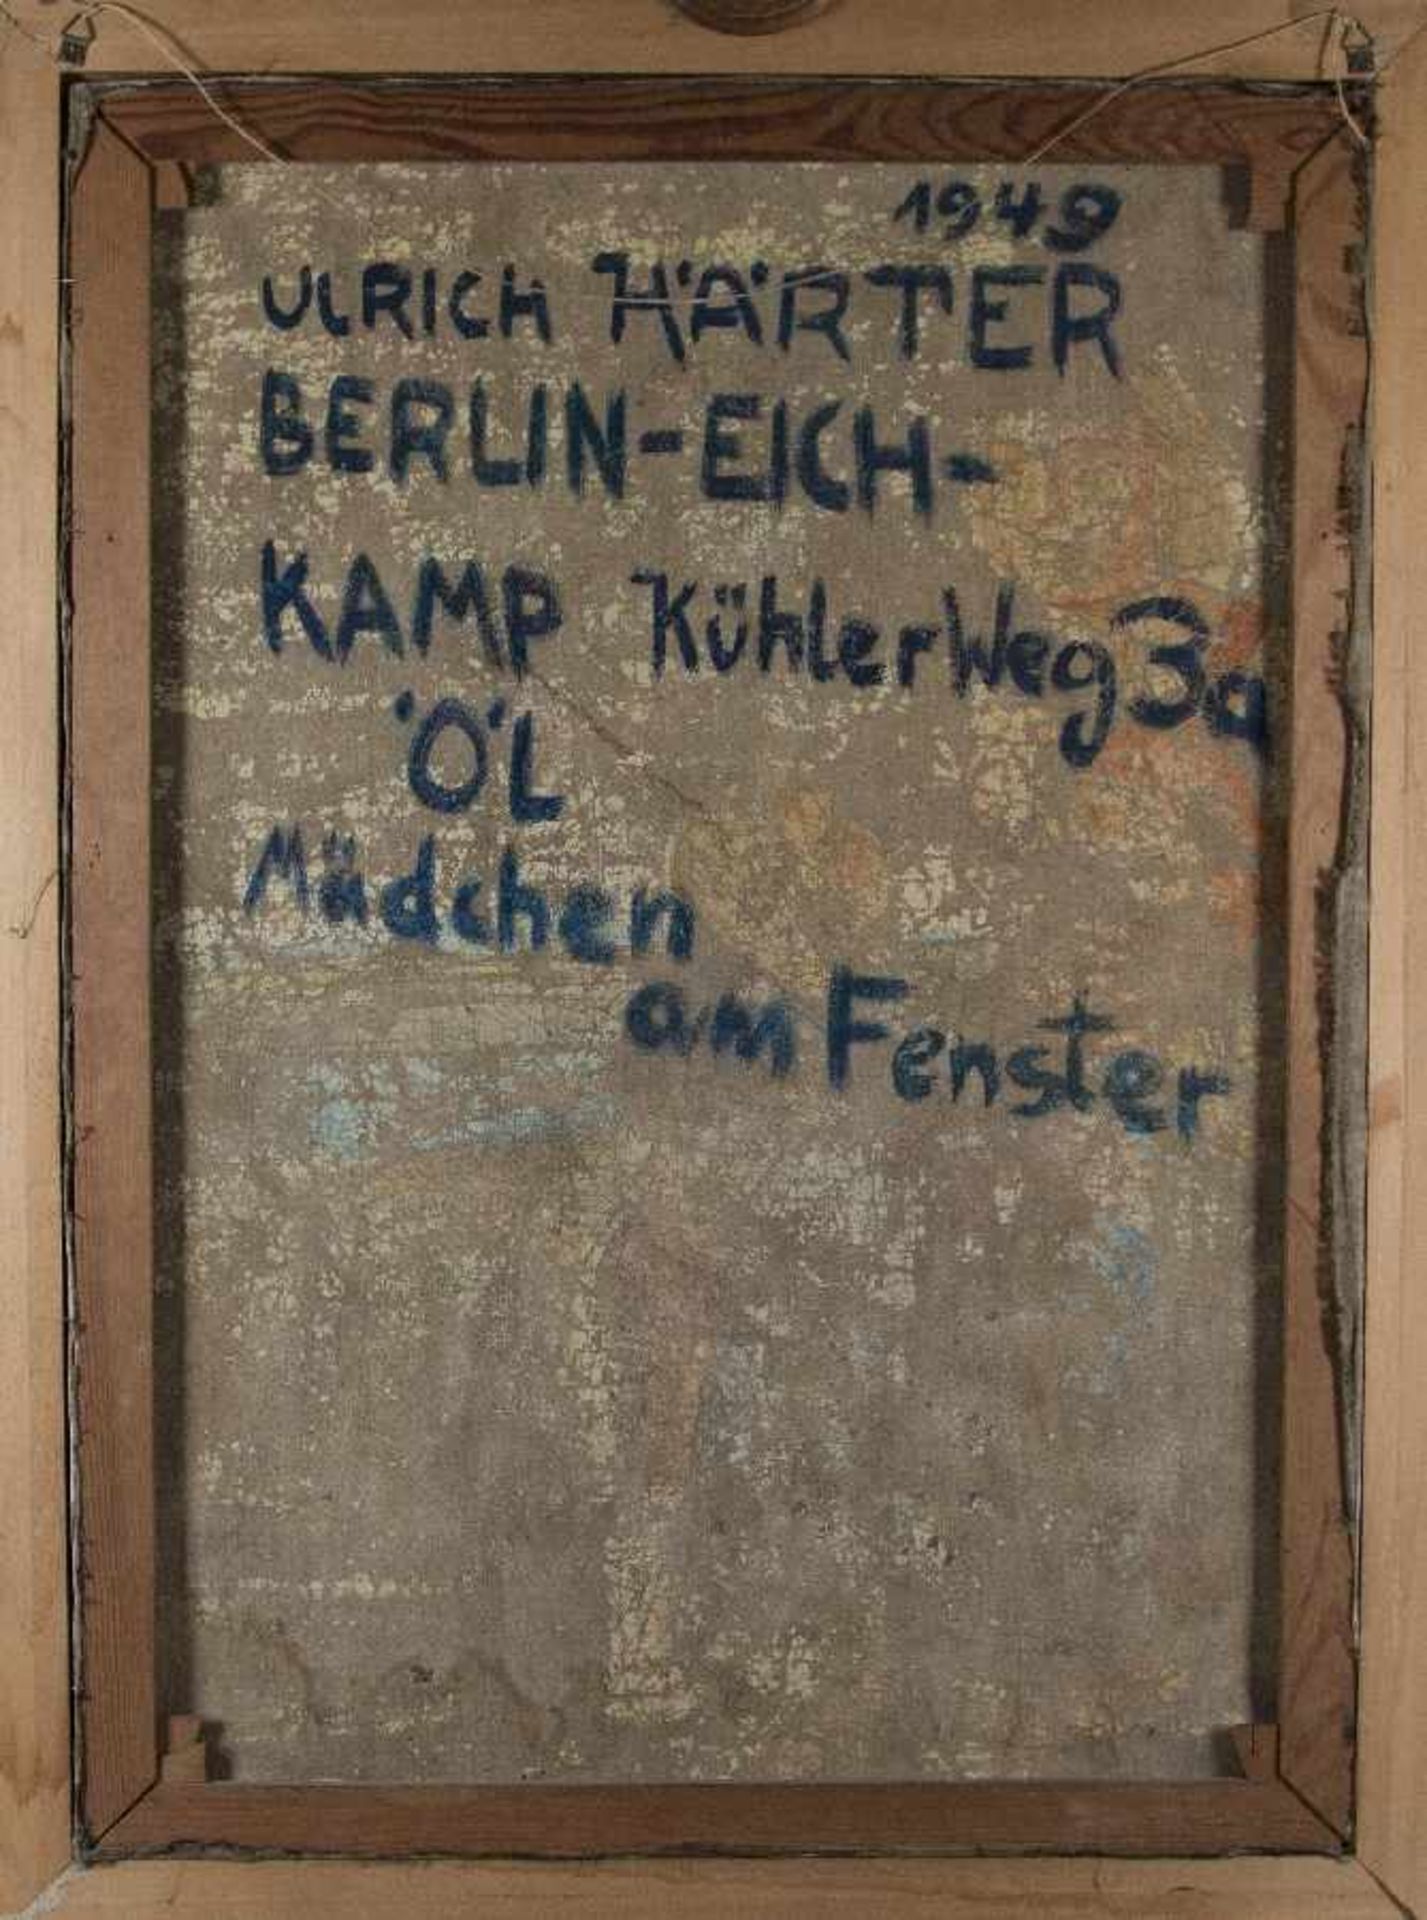 1949
ULRICH HÄRTER
BERLIN-EICH-
KAMP Kühler Weg 3a
ÖL
Mädchen
am Fenster